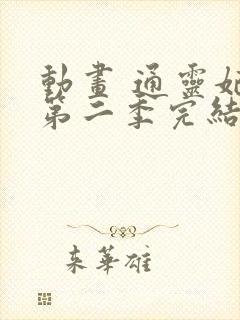 動畫 通靈妃
第二季完結
来華雄